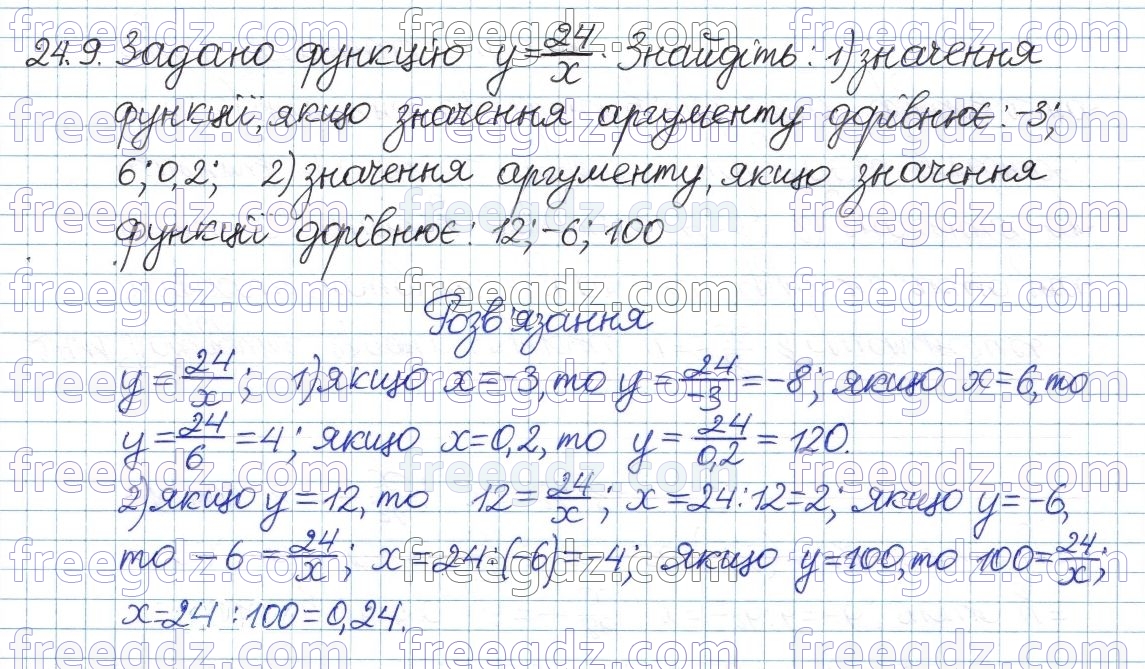 24.9. Задано функцію y=24/x. Знайдіть: 1) значення
функції, якщо значення аргументу дорівнює: -3;
6; 0,2; 2) значення аргументу, якщо значення
функції дорівнює: 12; -6; 100
Розв'язання
y=24/x; 1) якщо x=-3, то y=24/-3=-8; якщо x=6, то
y=24/6=4; якщо x=0,2, то y=24/0,2=120.
2) якщо y=12, то 12=24/x; x=24:12=2; якщо y=-6,
то -6=24/x; x=24:(-6)=-4; якщо y=100, то 100=24/x;
x=24:100=0,24.